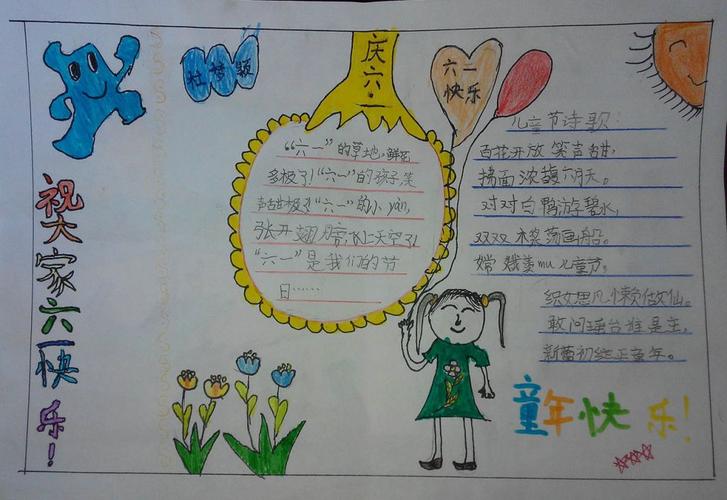 祝大家六一快乐！
杜梦颖
庆六·一
“六一”的草地，鲜花
多极了！“六一”的孩子，笑
声甜极了“六一”的小yàn，
张开翅膀，飞上天空了！
“六一”是我们的节
日……
六一
快乐
儿童节诗歌：
百花开放笑声甜，
拂面浓馥六月天。
对对白鸭游碧水，
双双木桨荡画船。
嫦娥羡mu儿童节，
织女思凡懒做仙。
敢问瑶台谁是主，
新蕾初绽正童年。
童年快乐！